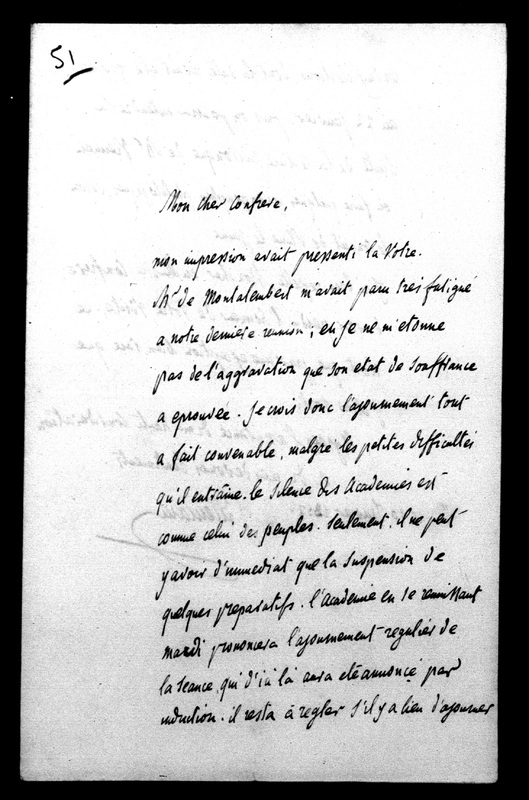 51
Mon cher confrere,
mon impression avait pressenti la Votre.
Mr de Montalembert m'avait paru très fatigué
a notre derniere reunion ; et je ne m'etonne
pas de l'aggravation que son etat de souffrance
a eprouvée. Je crois donc l'ajournement tout
a fait convenable, malgré les petites difficultés
qu'il entraîne. le silence des Academies est
comme celui des peuples. Seulement, il ne peut
y avoir d'immediat que la suspension de
quelques preparatifs. l'Academie en se reunissant
mardi prononcera l'ajournement regulier de
la seance, qui d'ici là aura eté annoncé par
induction. il resta à regler s'il y a lieu d'ajourner